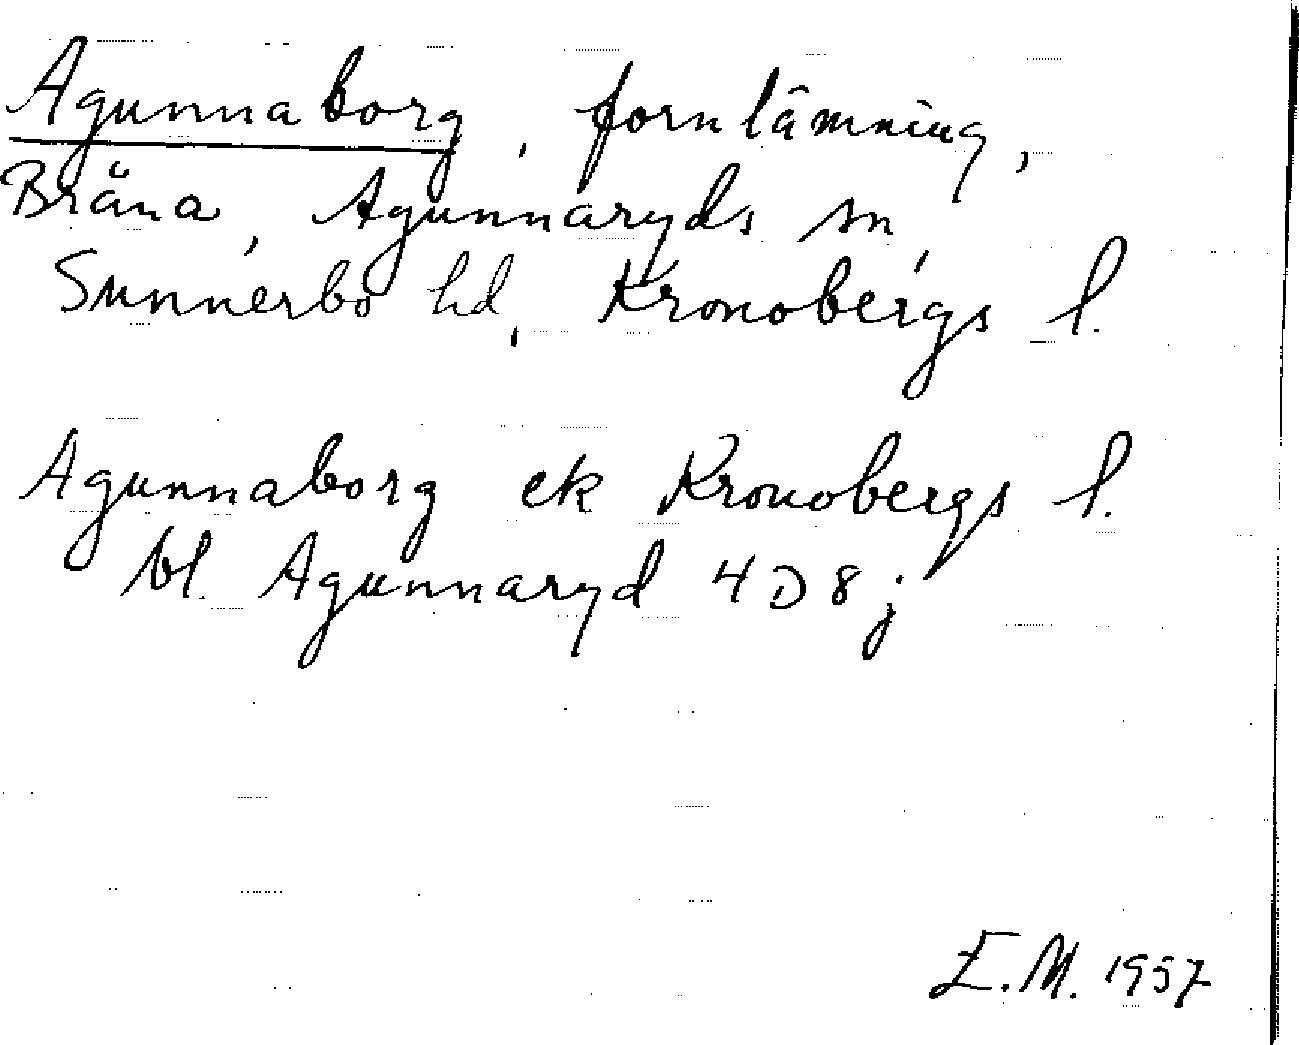 Agunnaborg, fornlämning,
Bräna, Agunnaryds sn,
Sunnerbo hd, Kronobergs l.
Agunnaborg ek Kronobergs l.
bl. Agunnaryd 4D8j
E.M. 1957